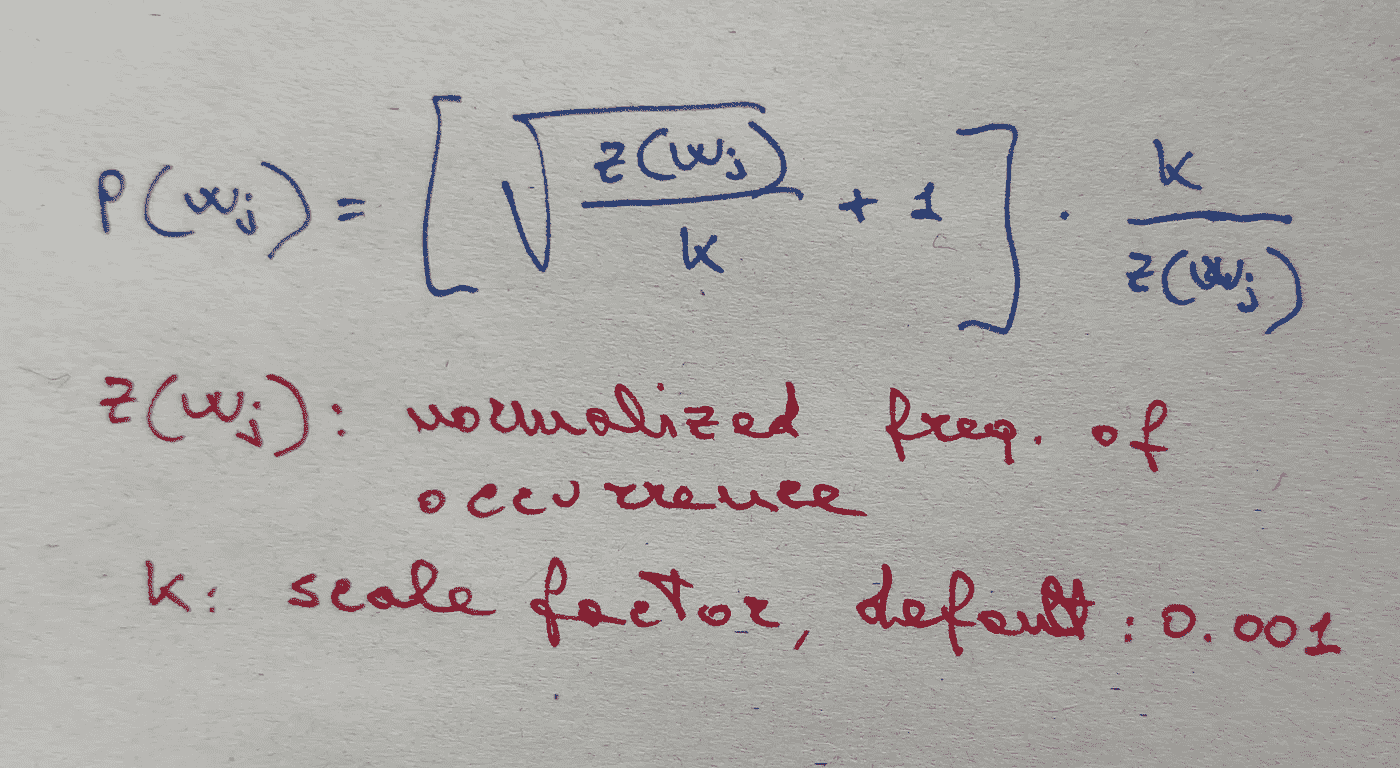 P(wj) = [√(z(wj)/k) + 1] · k/z(wj)
z(wj): normalized freq. of
occurrence
k: scale factor, default: 0.001